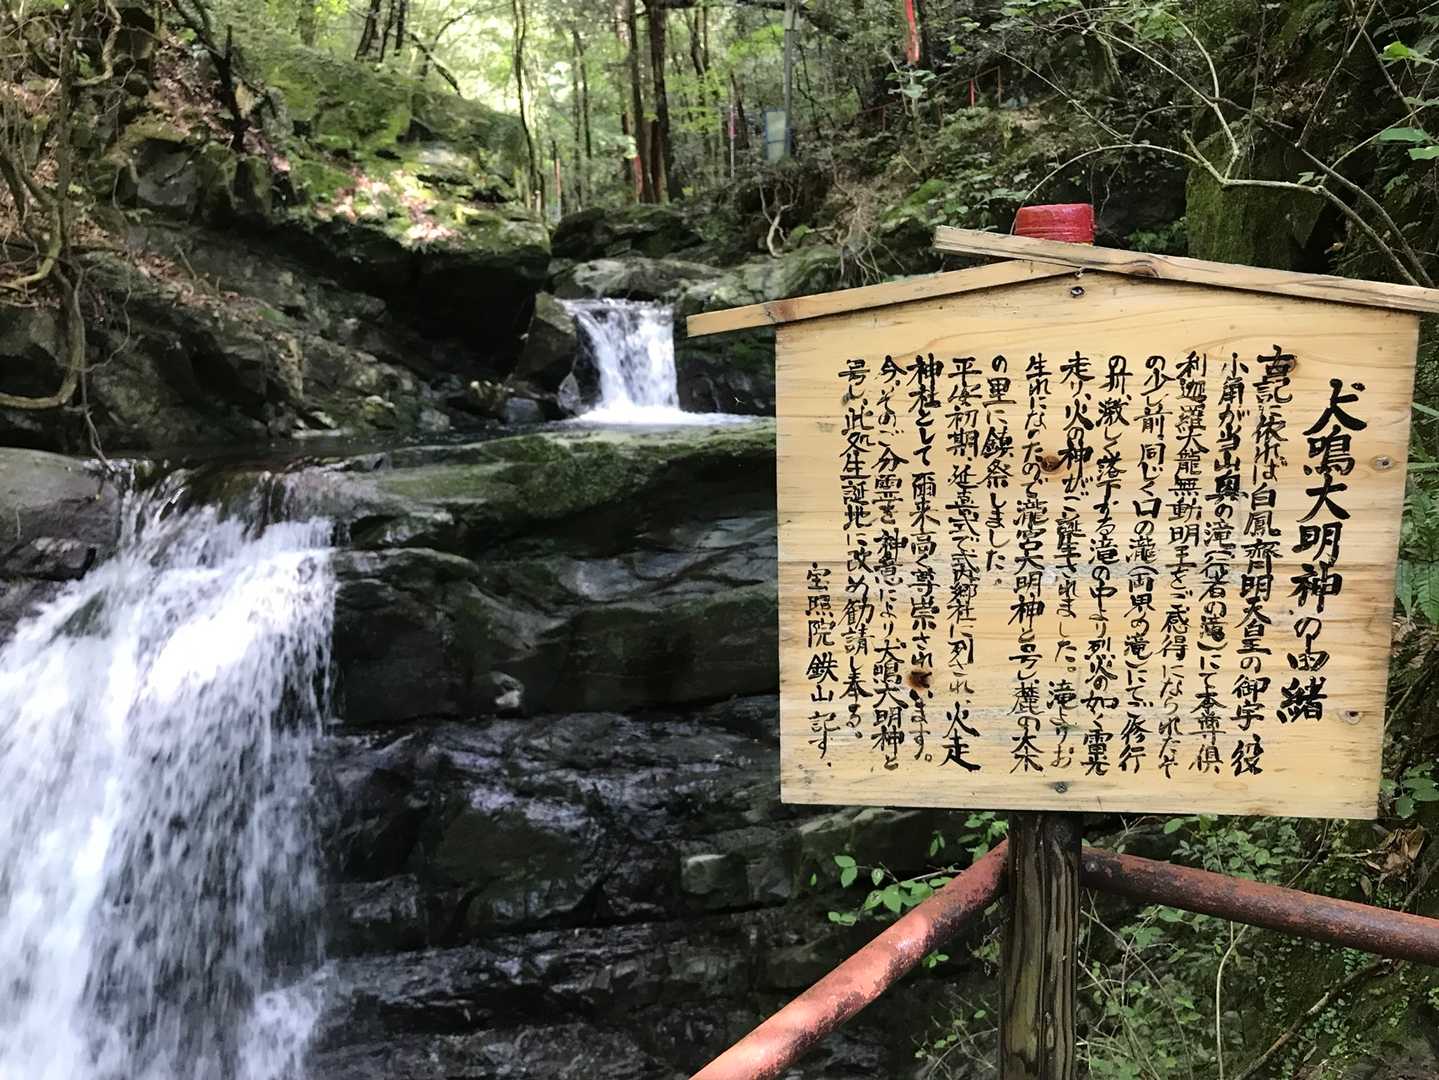 犬鳴大明神の由緒
古記に依れば白鳳齊明天皇の御宇、役
小角が当山奥の滝(行者の滝)にて本尊倶
利迦羅大龍無動明王をご感得になられたが、そ
の少し前、同じく口の瀧(両界の滝)にてご修行
の升、激しく落下する滝の中より烈火の如く雷光
走り、火の神がご誕生されました。滝よりお
生れになったので瀧宮大明神と号し、麓の大木
の里に鎮祭しました。
平安初期、延喜式で式内郷社に列され、火走
神社として爾来高く尊崇されています。
今、そのご分霊を神意により犬鳴大明神と
号し、此処生誕地に改め勧請し奉る。
宝照院鉄山記す.